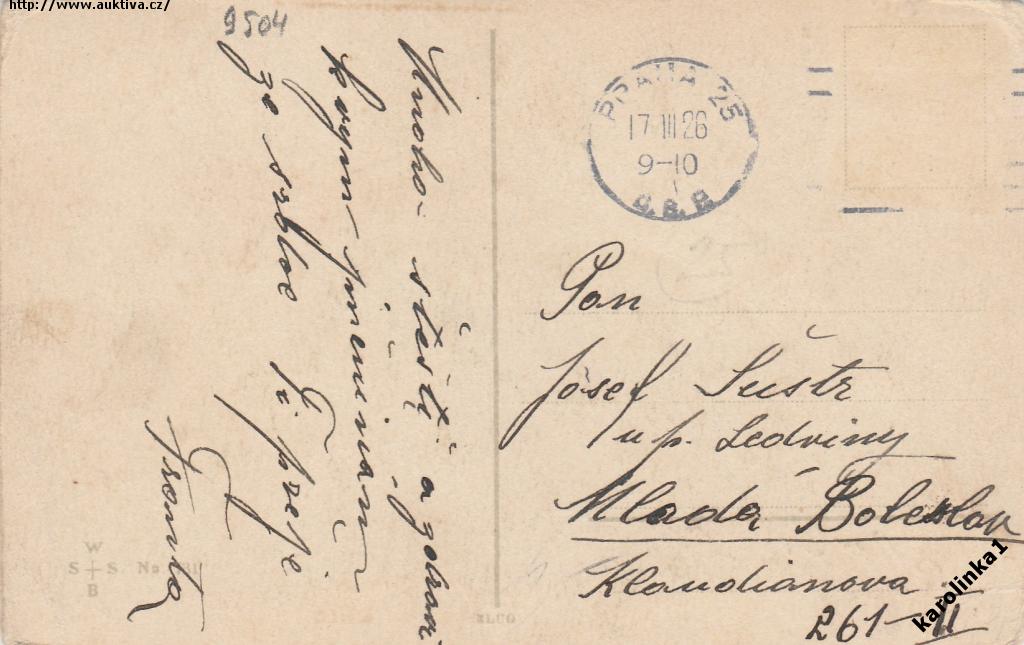 http://www.auktiva.cz/
9504
Mnoho štěstí a zdraví
k
ze srdce Ti přeje
Fronta
PRAHA 25
17 III 26
9-10
Č.S.P.
Pan
Josef Šustr
u p. Ledviny
Mladá Boleslav
Klaudianova
261-II
W
S S. No
B
karolinka1